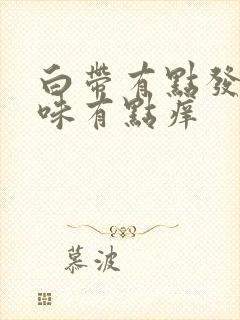 白帶有點發
味有點痒
慕波